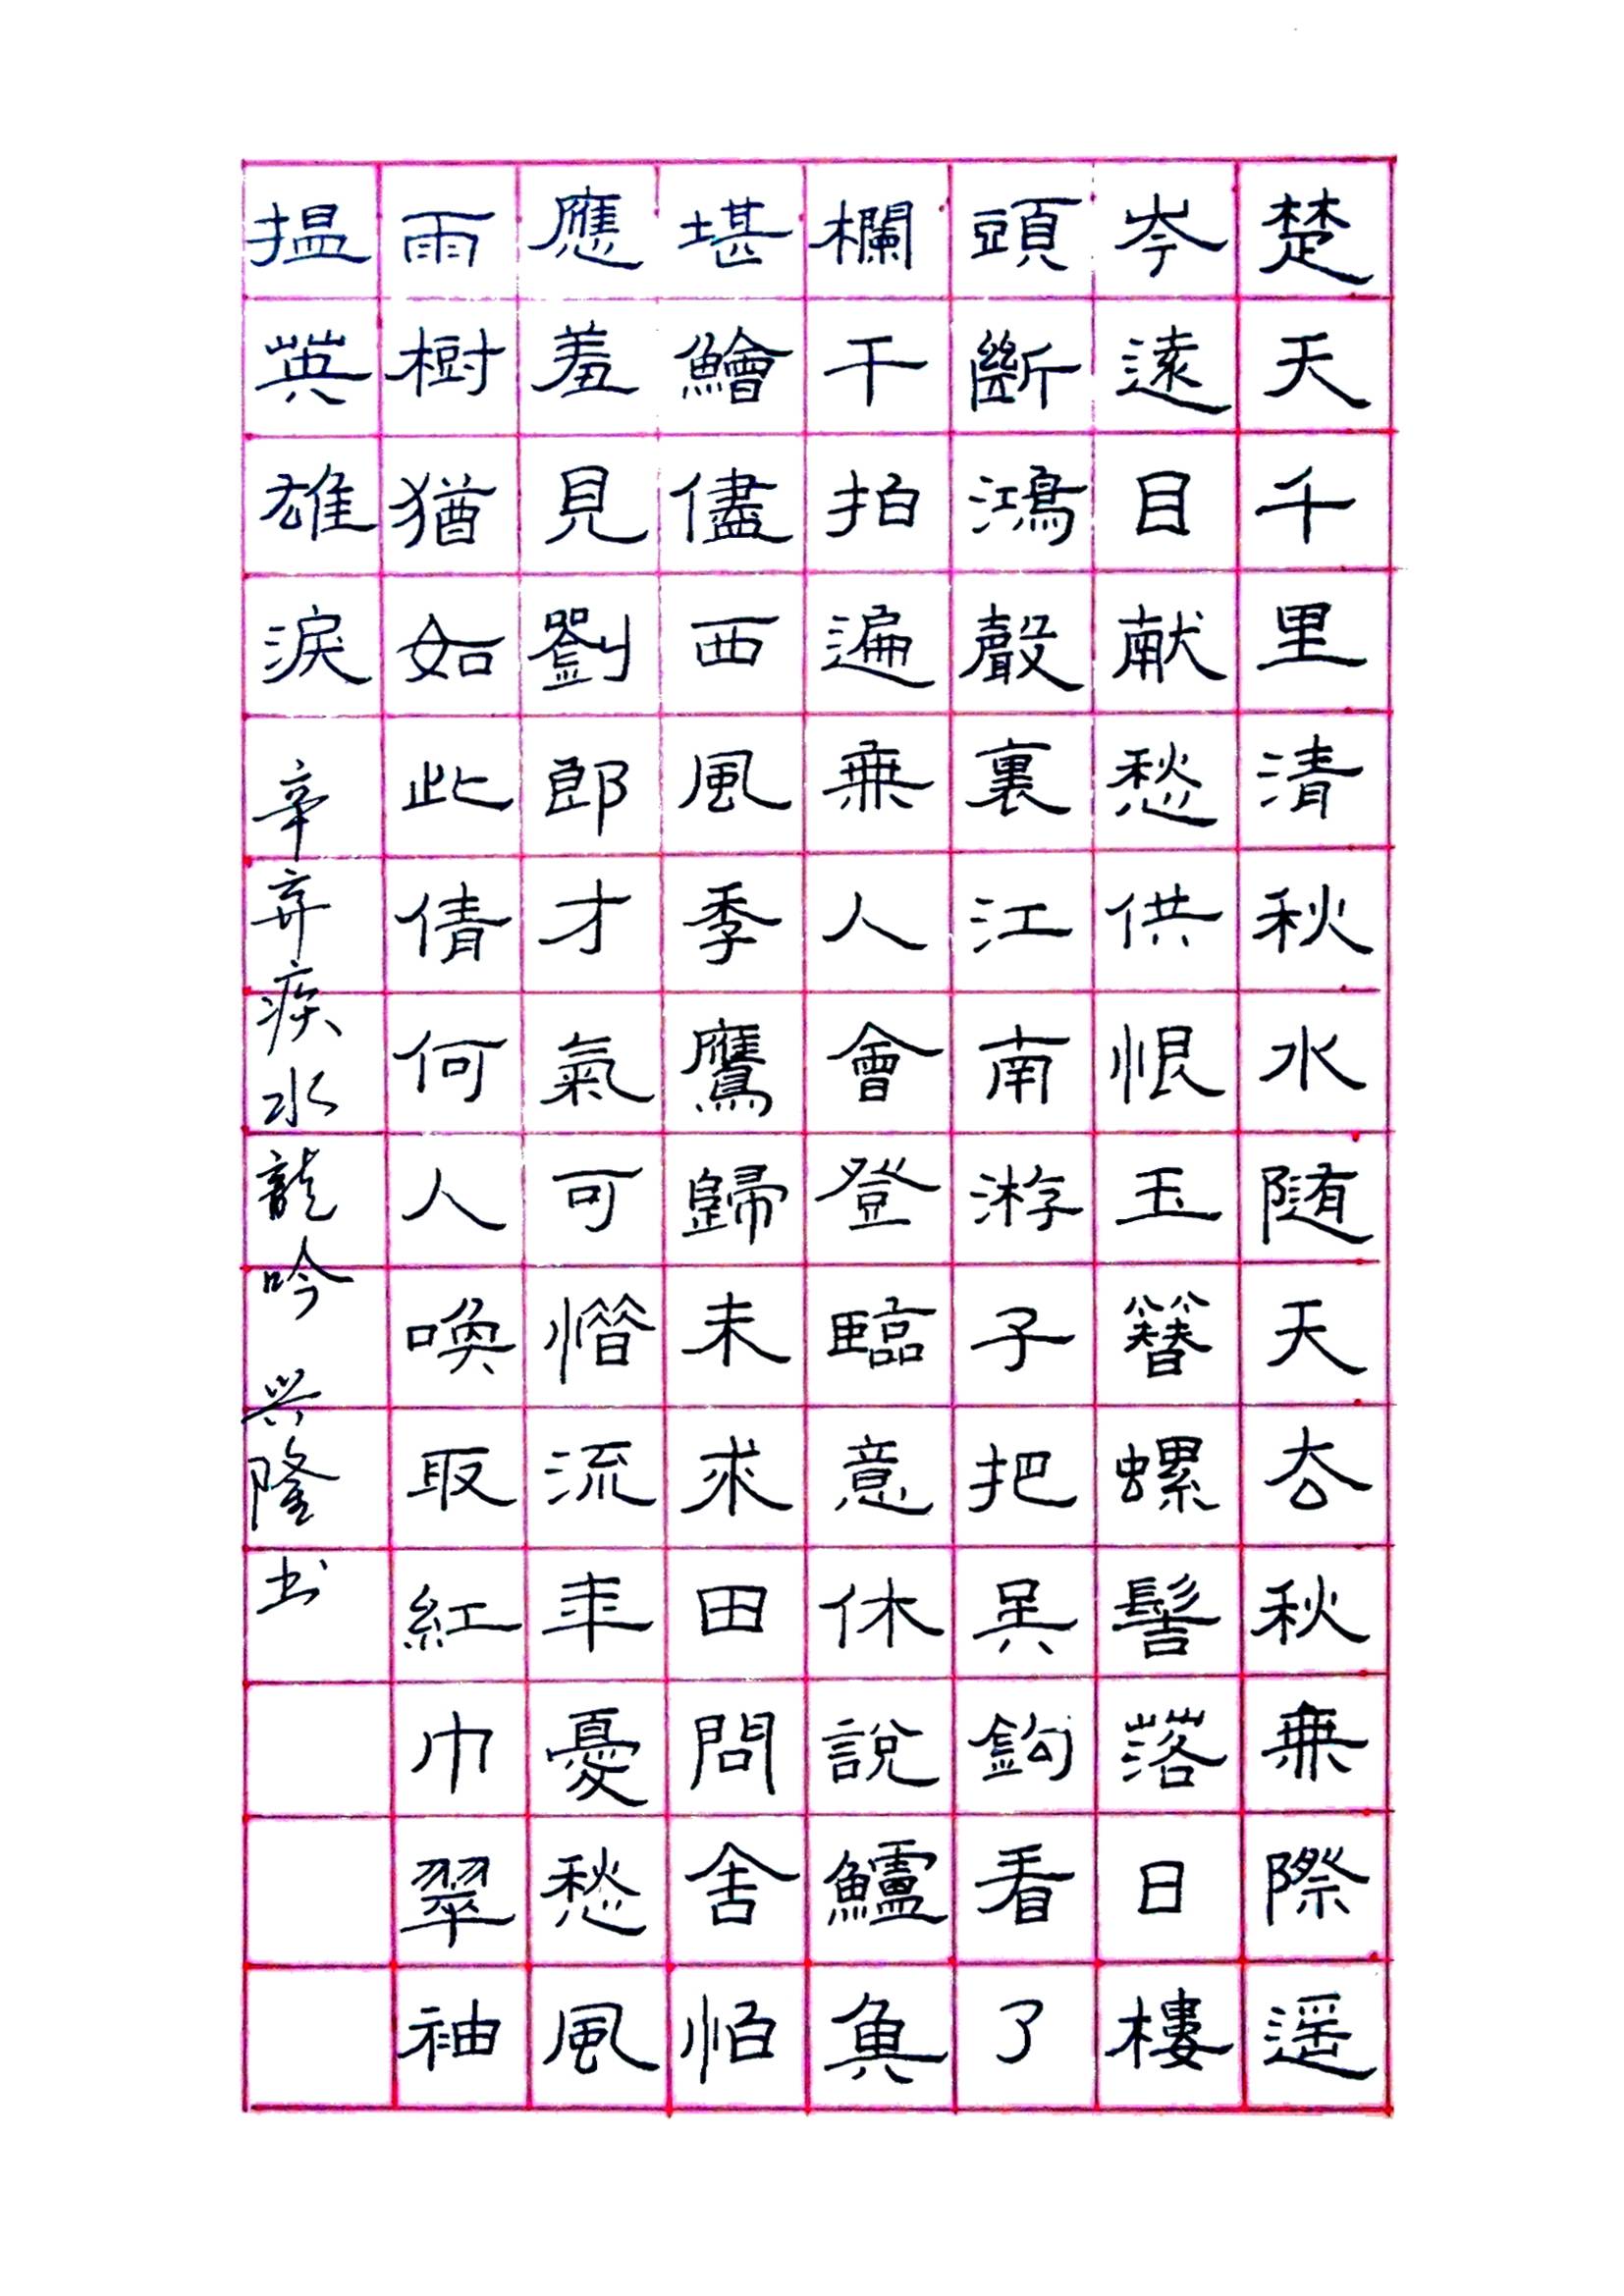 楚天千里清秋水随天去秋無際遥
岑遠目献愁供恨玉簪螺髻落日樓
頭斷鴻聲裏江南游子把吳鈎看了
欄干拍遍無人會登臨意休說鱸魚
堪鱠儘西風季鷹歸未求田問舍怕
應羞見劉郎才氣可惜流年憂愁風
雨樹猶如此倩何人喚取紅巾翠袖
揾英雄淚 辛弃疾水龍吟 兴隆书